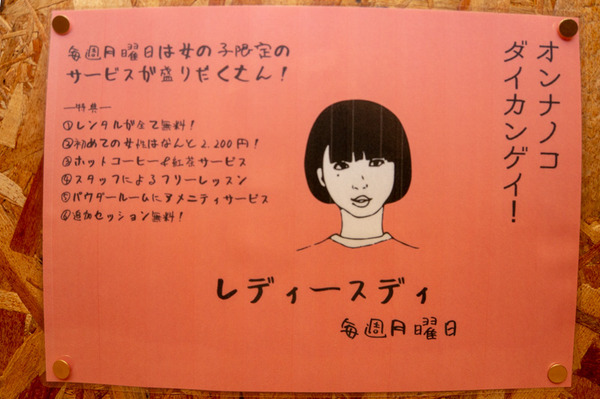 オンナノコ
ダイカンゲイ！
毎週月曜日は女の子限定の
サービスが盛りだくさん！
―特典―
①レンタルが全て無料！
②初めての女性はなんと2,200円！
③ホットコーヒー&紅茶サービス
④スタッフによるフリーレッスン
⑤パウダールームにアメニティサービス
⑥追加セッション無料！
レディースディ
毎週月曜日